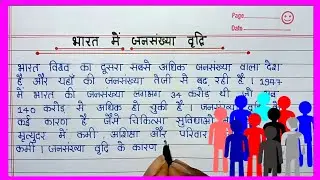 Page.....
Date.....
भारत में जनसंख्या वृद्धि
भारत विश्व का दूसरा सबसे अधिक जनसंख्या वाला देश
है और यहाँ की जनसंख्या तेजी से बढ़ रही है। 1947
में भारत की जनसंख्या लगभग 34 करोड़ थी जो
140 करोड़ से अधिक हो चुकी है। जनसंख्या के
कई कारण है जैसे चिकित्सा सुविधाओं
मृत्युदर में कमी, अशिक्षा और परिवार
कमी। जनसंख्या वृद्धि के कारण